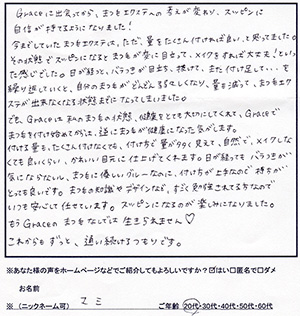 Graceに出会ってから、まつ毛エクステへの考えが変わり、スッピンに
自信が持てるようになりました!
今までしていたまつ毛エクステは、ただ、量をたくさん付ければ良い、と思ってました。
その状態でスッピンになるとまつ毛が変に目立って、メイクをすれば大丈夫!といっ
た感じでした。日が経つと、バラつきが目立ち、抜けて、また付け足して…を
繰り返していくと、自分のまつ毛がどんどん弱々しくなり、量も減って、まつ毛エク
ステが出来なくなる状態までになってしまいました。
でも、Graceは私のまつ毛の状態、健康をとても大切にしてくれて、Graceで
まつ毛を付け始めてからは、逆にまつ毛が健康になった気がします。
付ける量も、たくさん付けなくても、付け方で量が多く見えて、自然で、メイクしな
くても良いくらい、かわいい目元に仕上げてくれます。日が経ってもバラつきが
気にならないし、まつ毛に優しいグルーなのに、付け方が上手なので持ちが
とっても良いです。まつ毛の知識やデザインなど、すごく勉強されてる方なので
いつも安心して任せています。スッピンになるのが楽しみになりました。
もうGraceのまつ毛なしでは生きられません♡
これからもずっと、通い続けるつもりです。
※あなた様の声をホームページなどでご紹介してもよろしいですか?☑はい☐匿名で☐ダメ
お名前
※(ニックネーム可) マミ ご年齢 20代・30代・40代・50代・60代